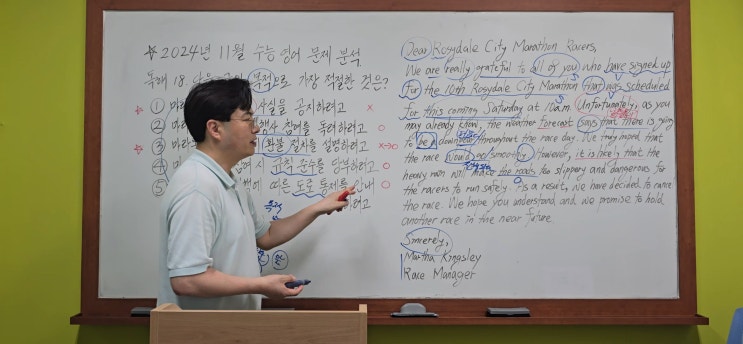 ☆ 2024년 11월 수능 영어 문제 분석
독해 18 다음 글의 목적으로 가장 적절한 것은?
☆ ① 마라 사실을 공지하려고 ×
② 마라 참여를 독려하려고 ○
☆ ③ 마라 환불 절차를 설명하려고 ×→○
④ 마 시 규칙 준수를 당부하려고 ○
⑤ 따른 도로 통제를 안내 ○
하려고
Dear Rosydale City Marathon Racers,
We are really grateful to all of you who have signed up
for the 10th Rosydale City Marathon that was scheduled
for this coming Saturday at 10 a.m. Unfortunately, as you
may already know, the weather forecast says that there is going
to be a downpour throughout the race day. We truly hoped that
the race would go smoothly. However, it is likely that the
heavy rain will make the roads too slippery and dangerous for
the racers to run safely. As a result, we have decided to cancel
the race. We hope you understand and we promise to hold
another race in the near future.
Sincerely,
Martha Kingsley
Race Manager